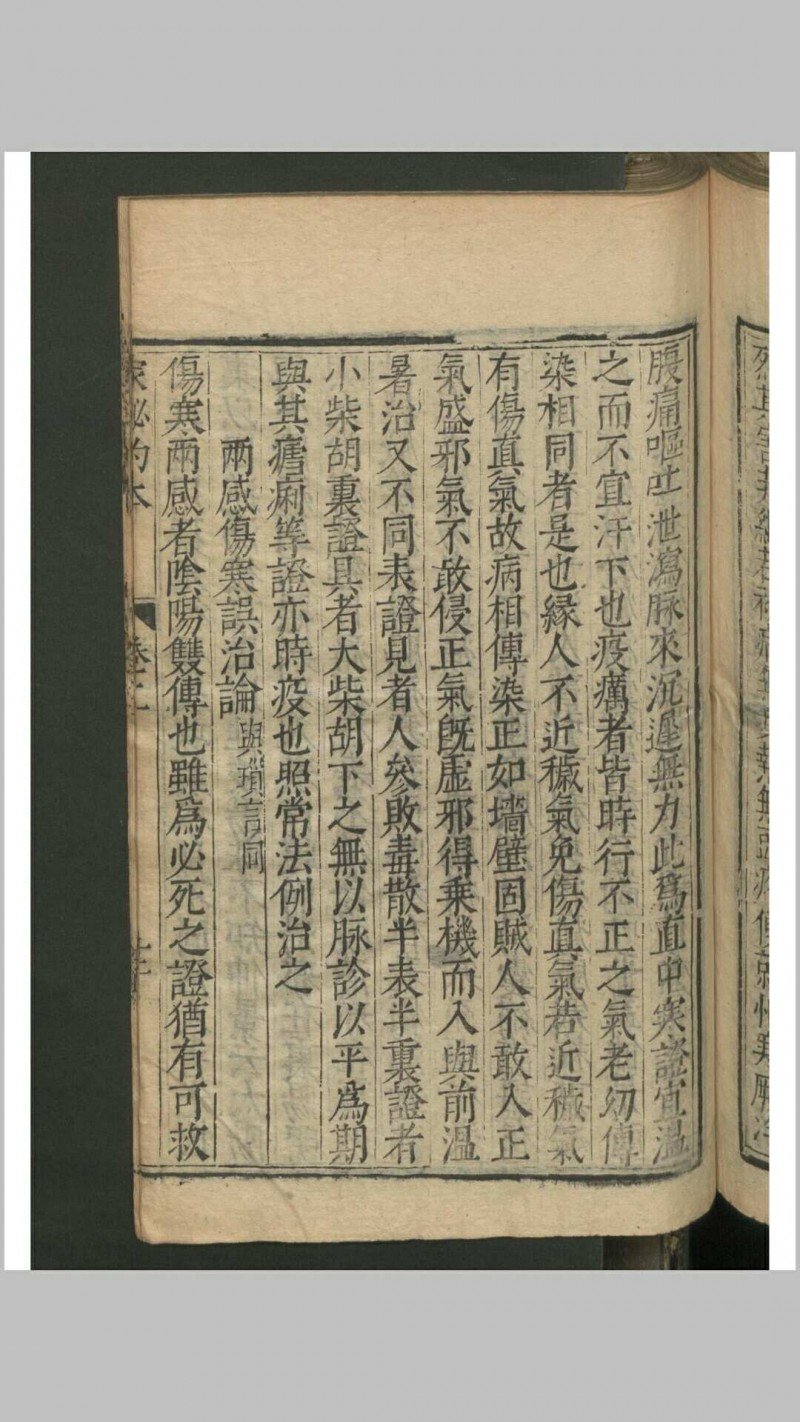 腹痛嘔吐泄瀉脉來沉遲無力此爲直中寒證宜溫
之而不宜汗下也疫癘者皆時行不正之氣老幼傳
染相同者是也緣人不近穢氣免傷真氣若近穢氣
有傷真氣故病相傳染正如墻壁固賊人不敢入正
氣盛邪氣不敢侵正氣既虛邪得乗機而入與前溫
暑治又不同表證見者人參敗毒散半表半裏證者
小柴胡裏證具者大柴胡下之無以脉診以平爲期
與其瘧痢等證亦時疫也照常法例治之
兩感傷寒誤治論 與瑣言同
傷寒兩感者陰陽雙傳也雖爲必死之證猶有可救
家秘的本 卷二